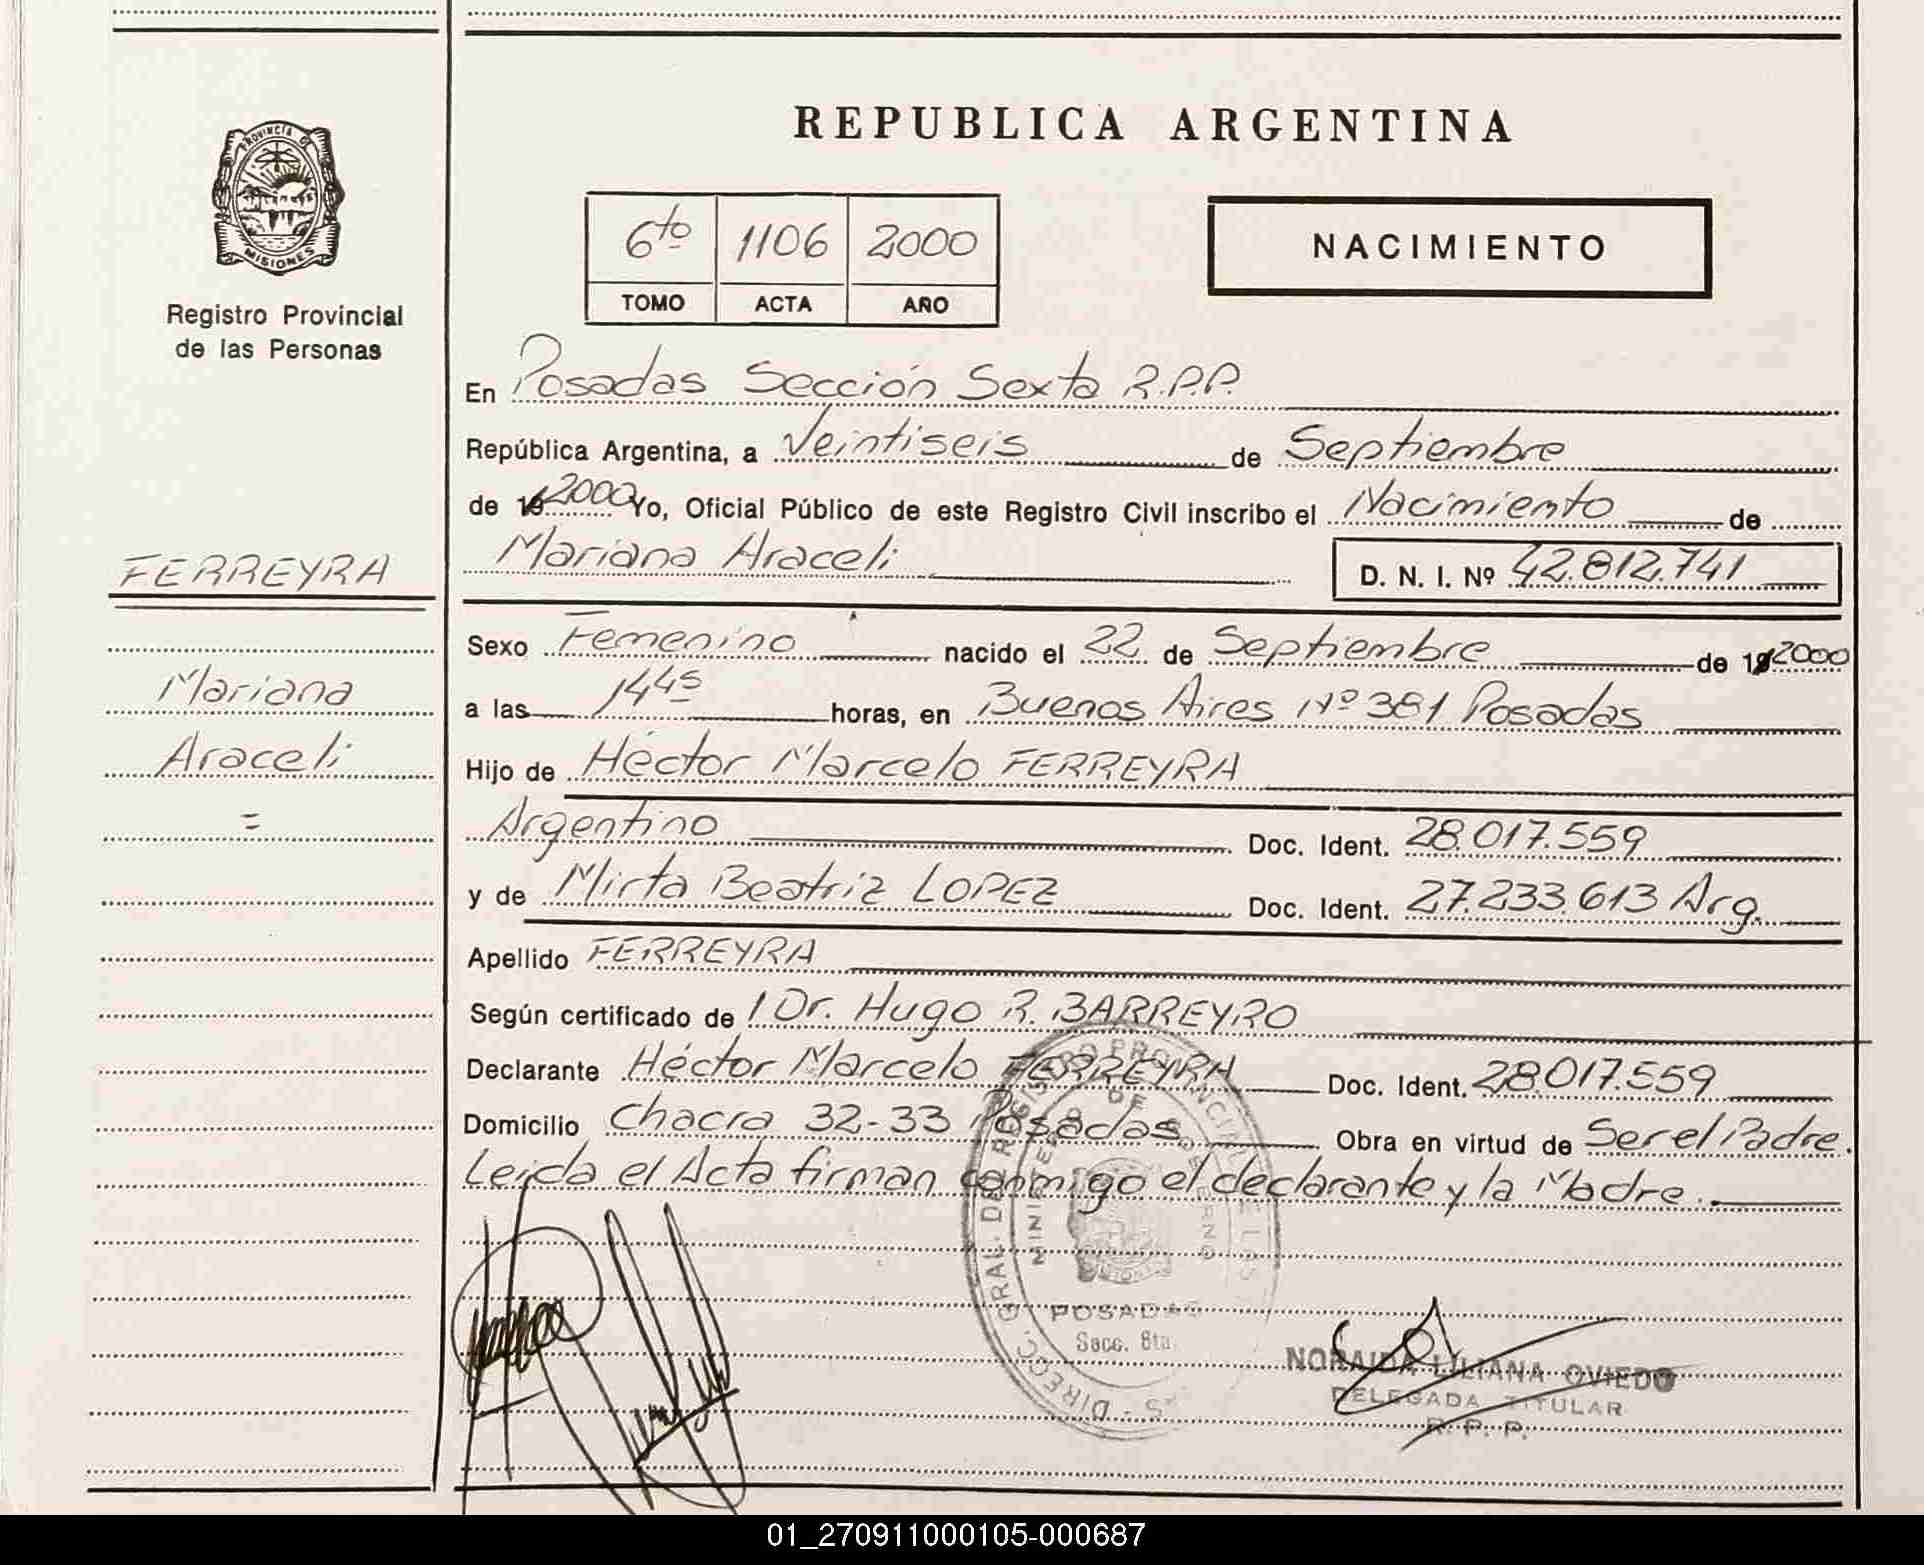 PROVINCIA DE
MISIONES
Registro Provincial
de las Personas
FERREYRA
Mariana
Araceli
=
REPUBLICA ARGENTINA
6to 1106 2000
TOMO ACTA AÑO
NACIMIENTO
En Posadas Sección Sexta R.P.P.
República Argentina, a Veintiseis de Septiembre
de 19 2000 Yo, Oficial Público de este Registro Civil inscribo el Nacimiento de
Mariana Araceli D. N. I. Nº 42.812.741
Sexo Femenino nacido el 22 de Septiembre de 19 2000
a las 14 45 horas, en Buenos Aires Nº 381 Posadas
Hijo de Héctor Marcelo FERREYRA
Argentino Doc. Ident. 28.017.559
y de Mirta Beatriz LOPEZ Doc. Ident. 27.233.613 Arg.
Apellido FERREYRA
Según certificado de / Dr. Hugo R. BARREYRO
Declarante Héctor Marcelo FERREYRA Doc. Ident. 28.017.559
Domicilio Chacra 32-33 Posadas Obra en virtud de Ser el Padre.
Leida el Acta firman conmigo el declarante y la Madre.
DIRECC. GRAL. DEL REGISTRO PROVINCIAL DE LAS
MINISTERIO DE GOBIERNO
POSADAS
Secc. 6ta
NORAIDA LILIANA OVIEDO
DELEGADA TITULAR
R. P. P.
01_270911000105-000687